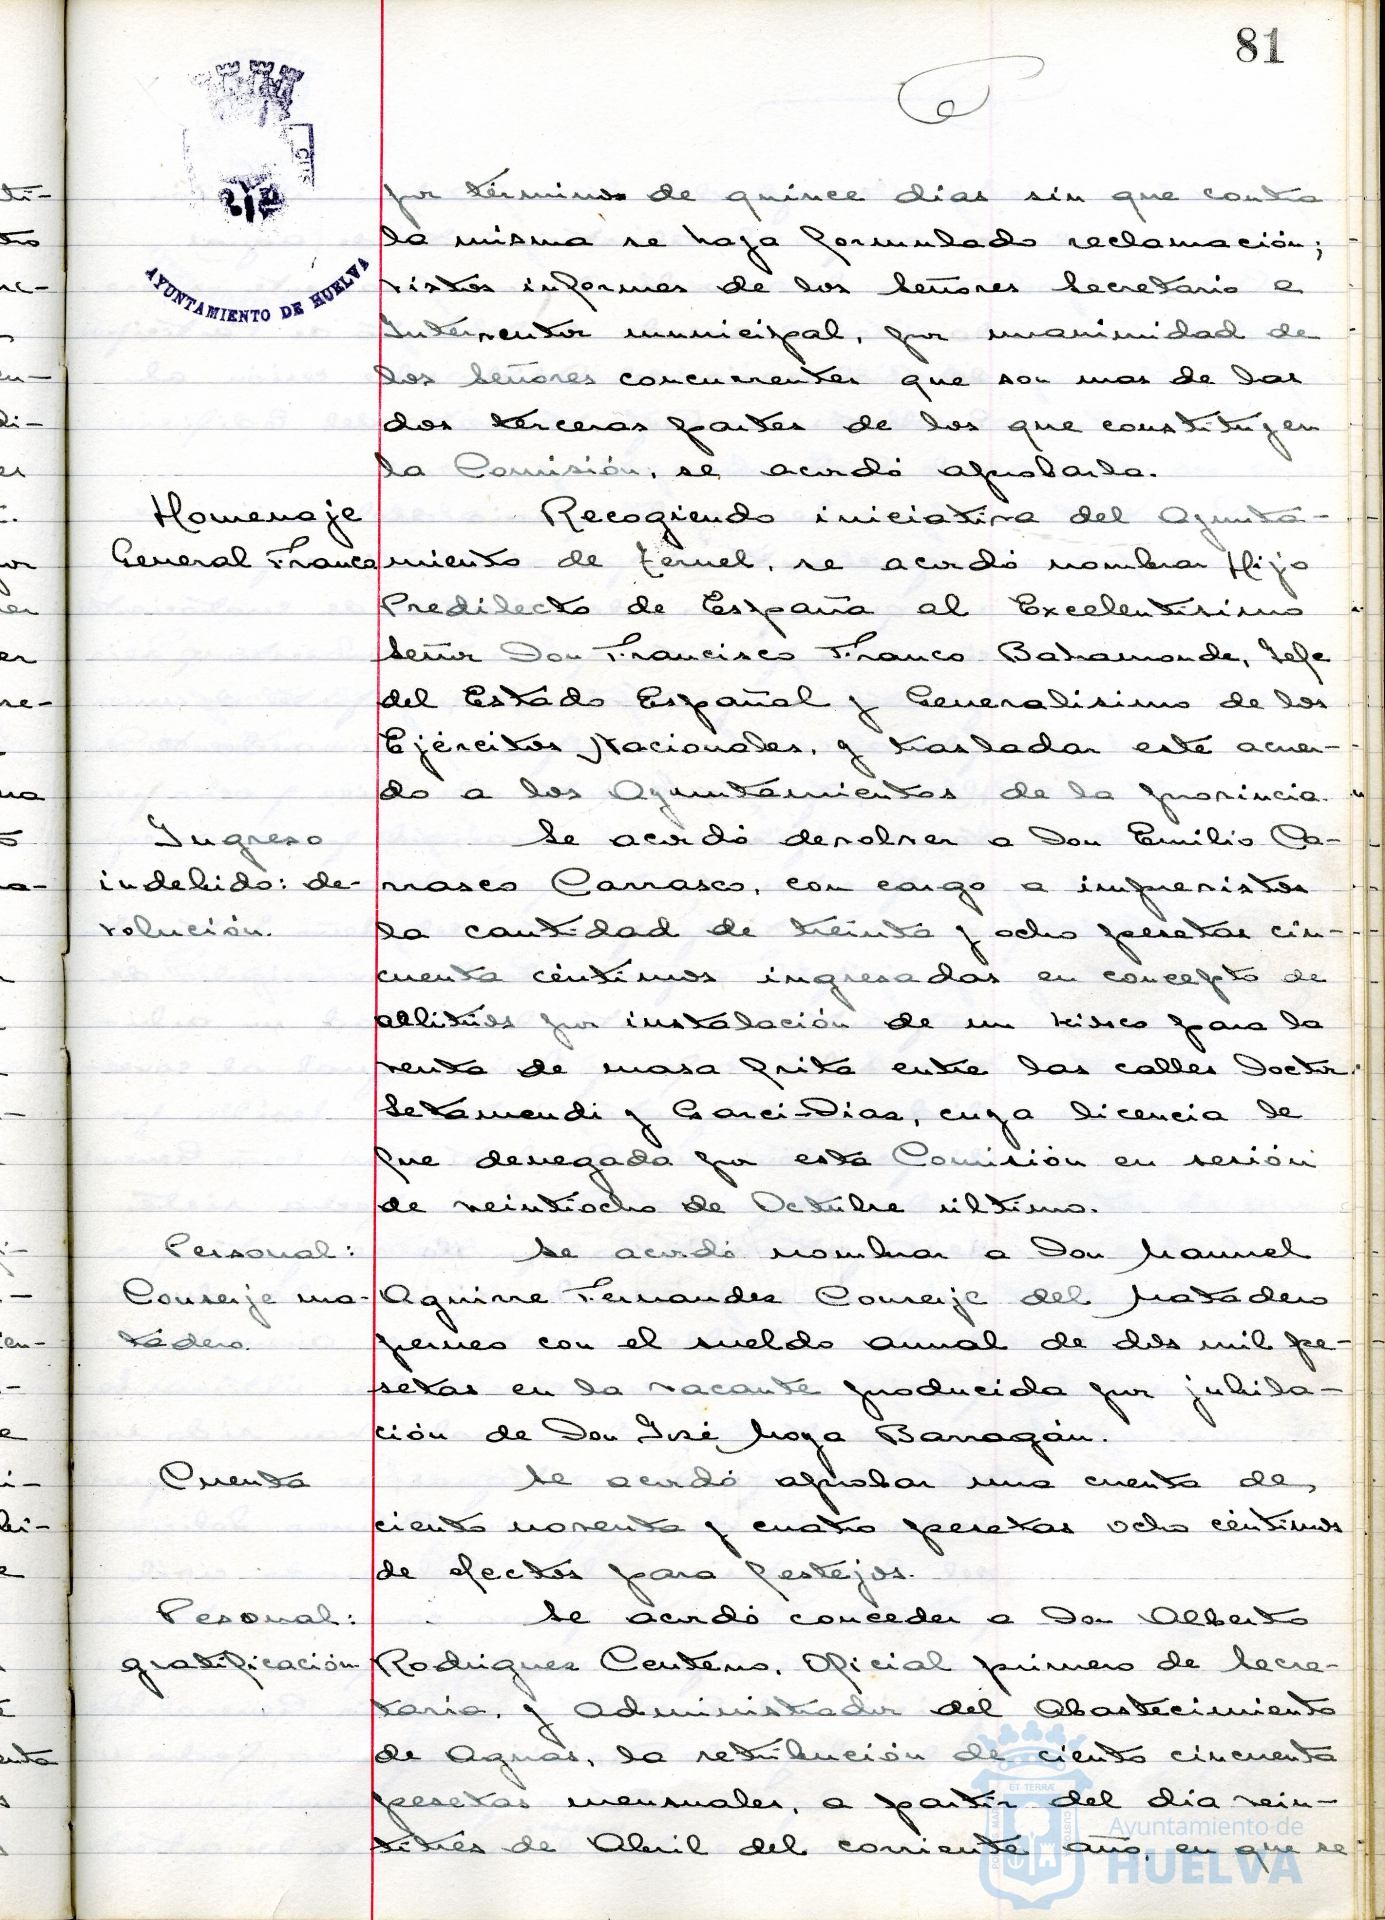 81
AYUNTAMIENTO DE HUELVA
por término de quince dias sin que contra
la misma se haya formulado reclamación;
vistos informes de los Señores Secretario e
Interventor municipal, por unanimidad de
los Señores concurrentes que son mas de las
dos terceras partes de los que constituyen
la Comisión, se acordó aprobarla.
Homenaje
General Franco
Recogiendo iniciativa del Ayunta-
miento de Teruel, se acordó nombrar Hijo
Predilecto de España al Excelentisimo
Señor Don Francisco Franco Bahamonde, Jefe
del Estado Español y Generalisimo de los
Ejércitos Nacionales, y trasladar este acuer-
do a los Ayuntamientos de la provincia.
Ingreso
indebido: de-
volución.
Se acordó devolver a Don Emilio Ca-
rrasco Carrasco, con cargo a imprevistos
la cantidad de treinta y ocho pesetas cin-
cuenta céntimos ingresadas en concepto de
arbitrios por instalación de un kisco para la
venta de masa frita entre las calles Doctor
Letamendi y Garci-Dias, cuya licencia le
fue denegada por esta Comisión en sesión
de veintiocho de Octubre último.
Personal:
Conserje ma-
tadero.
Se acordó nombrar a Don Manuel
Aguirre Fernandez Conserje del Matadero
perneo con el sueldo anual de dos mil pe-
setas en la vacante producida por jubila-
ción de Don José Moya Barragán.
Cuenta
Se acordó aprobar una cuenta de,
ciento noventa y cuatro pesetas ocho céntimos
de efectos para festejos.
Pesonal:
gratificación
Se acordó conceder a Don Alberto
Rodriguez Centeno, Oficial primero de Secre-
taria, y Administrador del Abastecimiento
de Aguas, la retribución de ciento cincuenta
pesetas mensuales, a partir del dia vein-
titrés de Abril del corriente año, en que se
Ayuntamiento de
HUELVA